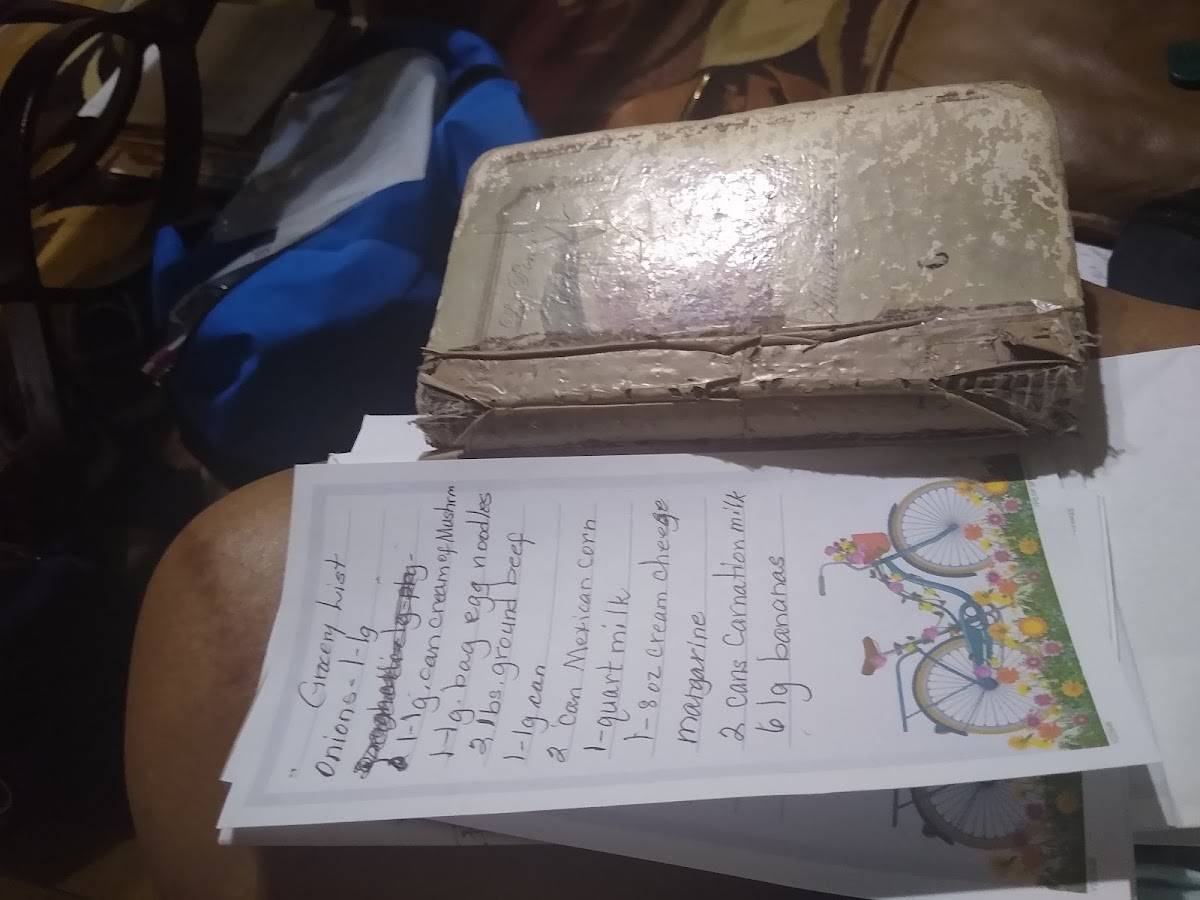 Grocery List
Onions - 1-lg
1-lg. can cream of Mushrm
1-lg. bag egg noodles
2 lbs. ground beef
1-lg can
2 can Mexican corn
1-quart milk
1-8 oz cream cheege
margarine
2 cans Carnation milk
6 lg bananas